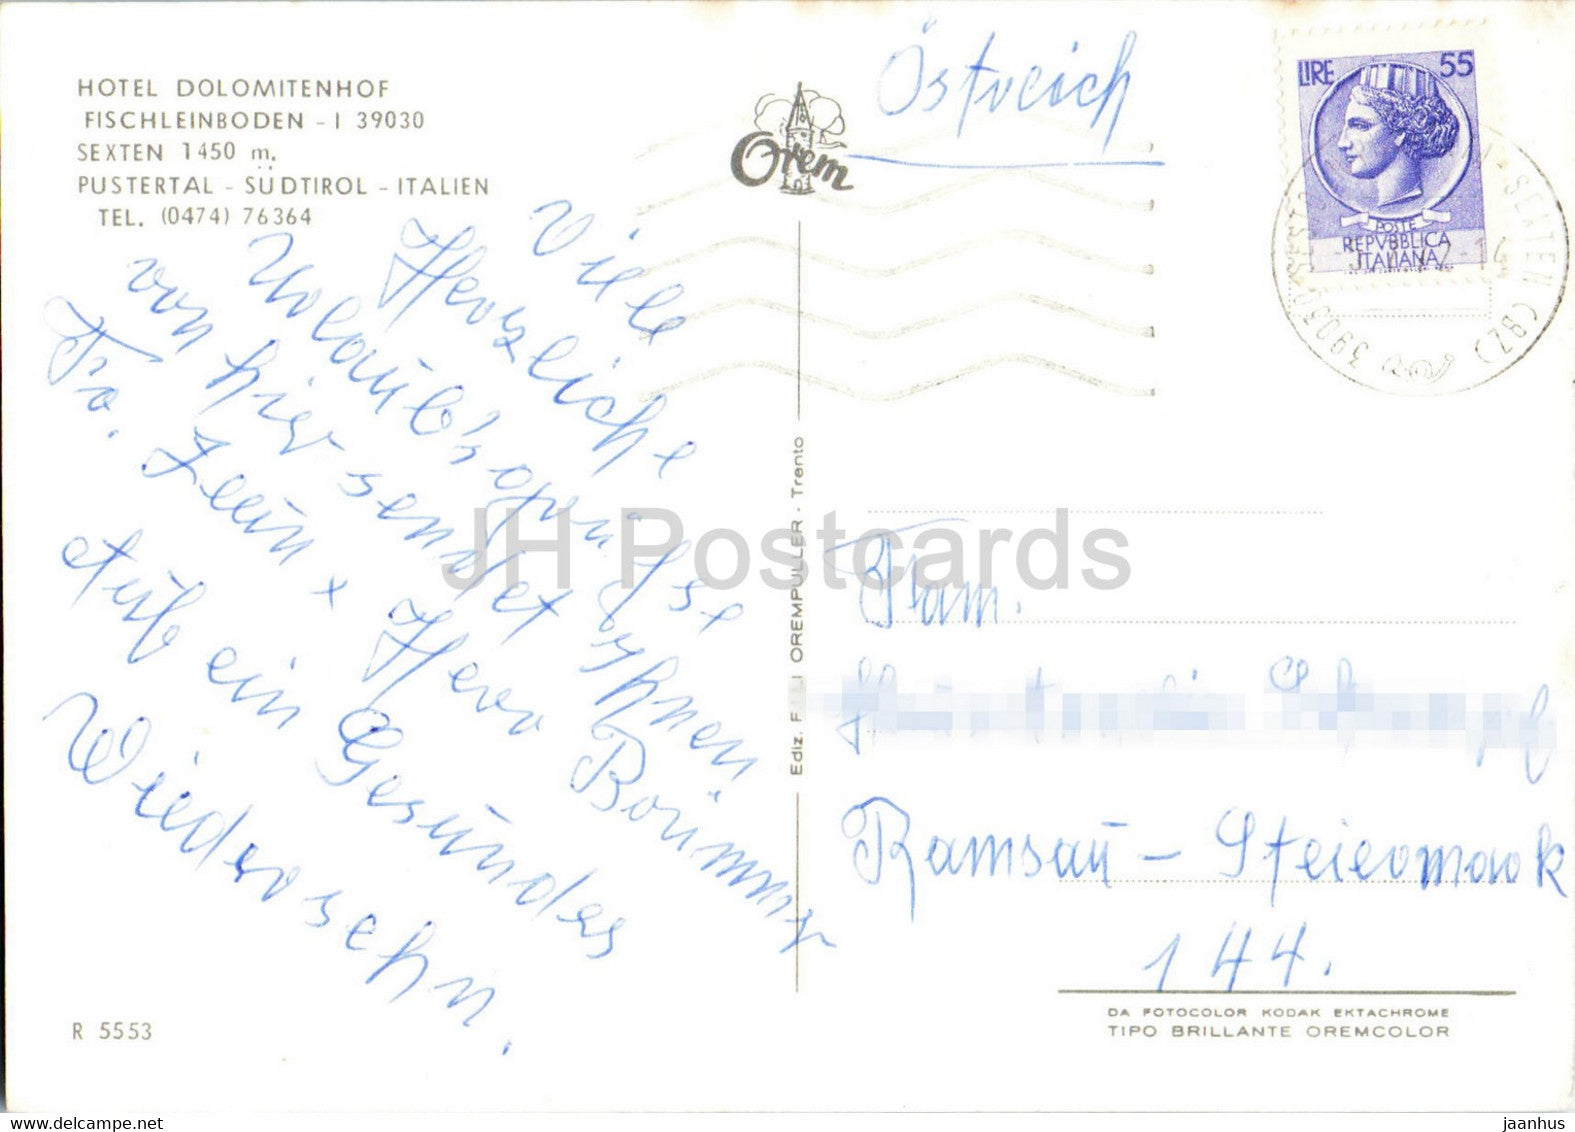 HOTEL DOLOMITENHOF
FISCHLEINBODEN - I 39030
SEXTEN 1450 m.
PUSTERTAL - SÜDTIROL - ITALIEN
TEL. (0474) 76364
Orem
Östreich
LIRE 55
POSTE
REPVBBLICA
ITALIANA
39030 SEXTEN (BZ)
Viele
Herzliche
Urlaub's
von hier sendet Ihnen
Fa. + Herr
Aufs ein Gesundes
Wiedersehn.
Ediz. F.LLI OREMPULLER - Trento
JH Postcards
Fam.
Ramsau - Steiermark
144.
R 5553
DA FOTOCOLOR KODAK EKTACHROME
TIPO BRILLANTE OREMCOLOR
www.jaanhus.com